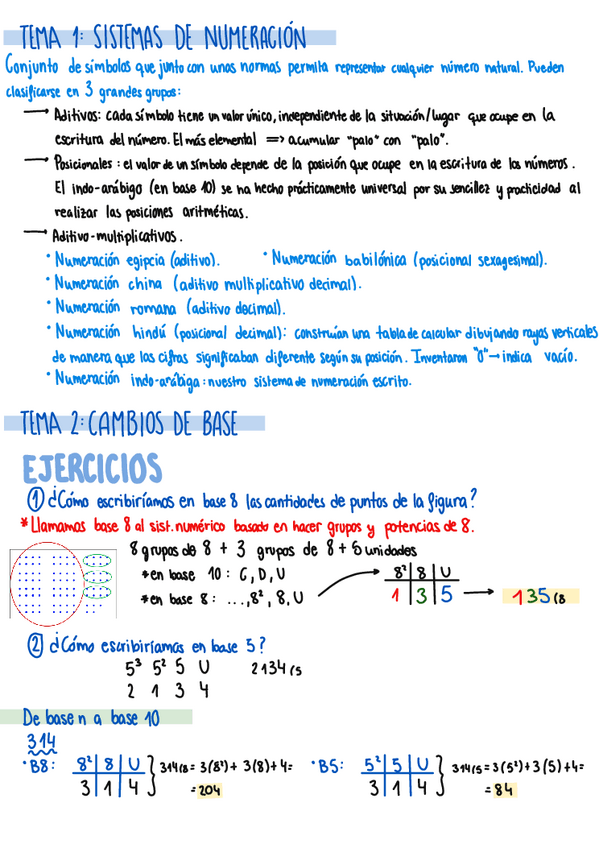 TEMA 1: SISTEMAS DE NUMERACIÓN
Conjunto de símbolos que junto con unas normas permita representar cualquier número natural. Pueden
clasificarse en 3 grandes grupos:
→ Aditivos: cada símbolo tiene un valor único, independiente de la situación/lugar que ocupe en la
escritura del número. El más elemental => acumular "palo" con "palo".
→ Posicionales: el valor de un símbolo depende de la posición que ocupe en la escritura de los números.
El indo-arábigo (en base 10) se ha hecho prácticamente universal por su sencillez y practicidad al
realizar las posiciones aritméticas.
→ Aditivo-multiplicativos.
· Numeración egipcia (aditivo). · Numeración babilónica (posicional sexagesimal).
· Numeración china (aditivo multiplicativo decimal).
· Numeración romana (aditivo decimal).
· Numeración hindú (posicional decimal): construían una tabla de calcular dibujando rayas verticales
de manera que las cifras significaban diferente según su posición. Inventaron "0" → indica vacío.
· Numeración indo-arábiga: nuestro sistema de numeración escrito.
TEMA 2: CAMBIOS DE BASE
EJERCICIOS
① ¿Cómo escribiríamos en base 8 las cantidades de puntos de la figura?
* Llamamos base 8 al sist. numérico basado en hacer grupos y potencias de 8.
8 grupos de 8 + 3 grupos de 8 + 5 unidades
* en base 10: C, D, U
* en base 8: ..., 8², 8, U
8² | 8 | U
1 | 3 | 5 → 135(8
② ¿Cómo escribiríamos en base 5?
5³ 5² 5 U 2134(5
2 1 3 4
De base n a base 10
314
· B8: 8² | 8 | U } 314(8 = 3(8²) + 3(8) + 4 =
3 | 1 | 4 = 204
· B5: 5² | 5 | U } 314(5 = 3(5²) + 3(5) + 4 =
3 | 1 | 4 = 84